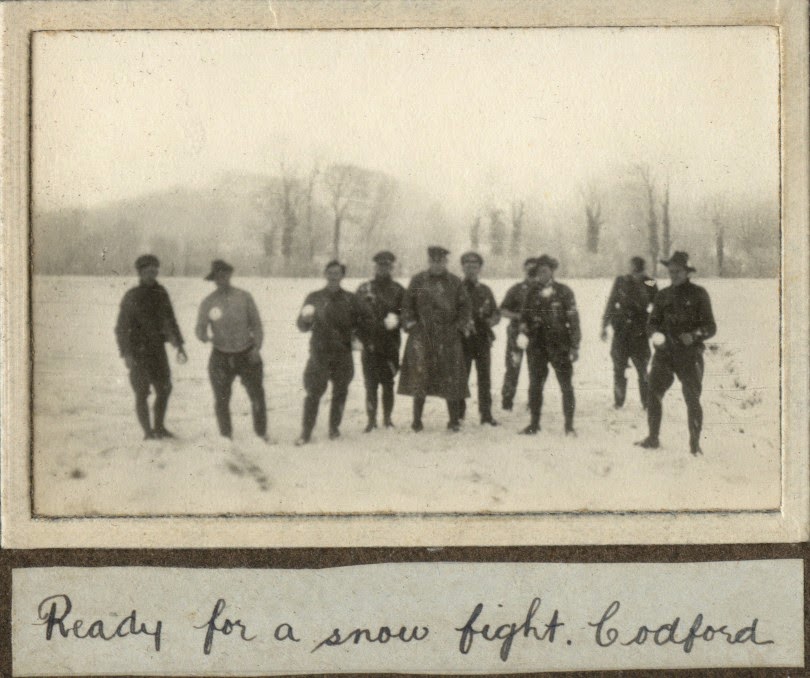 Ready for a snow fight. Codford